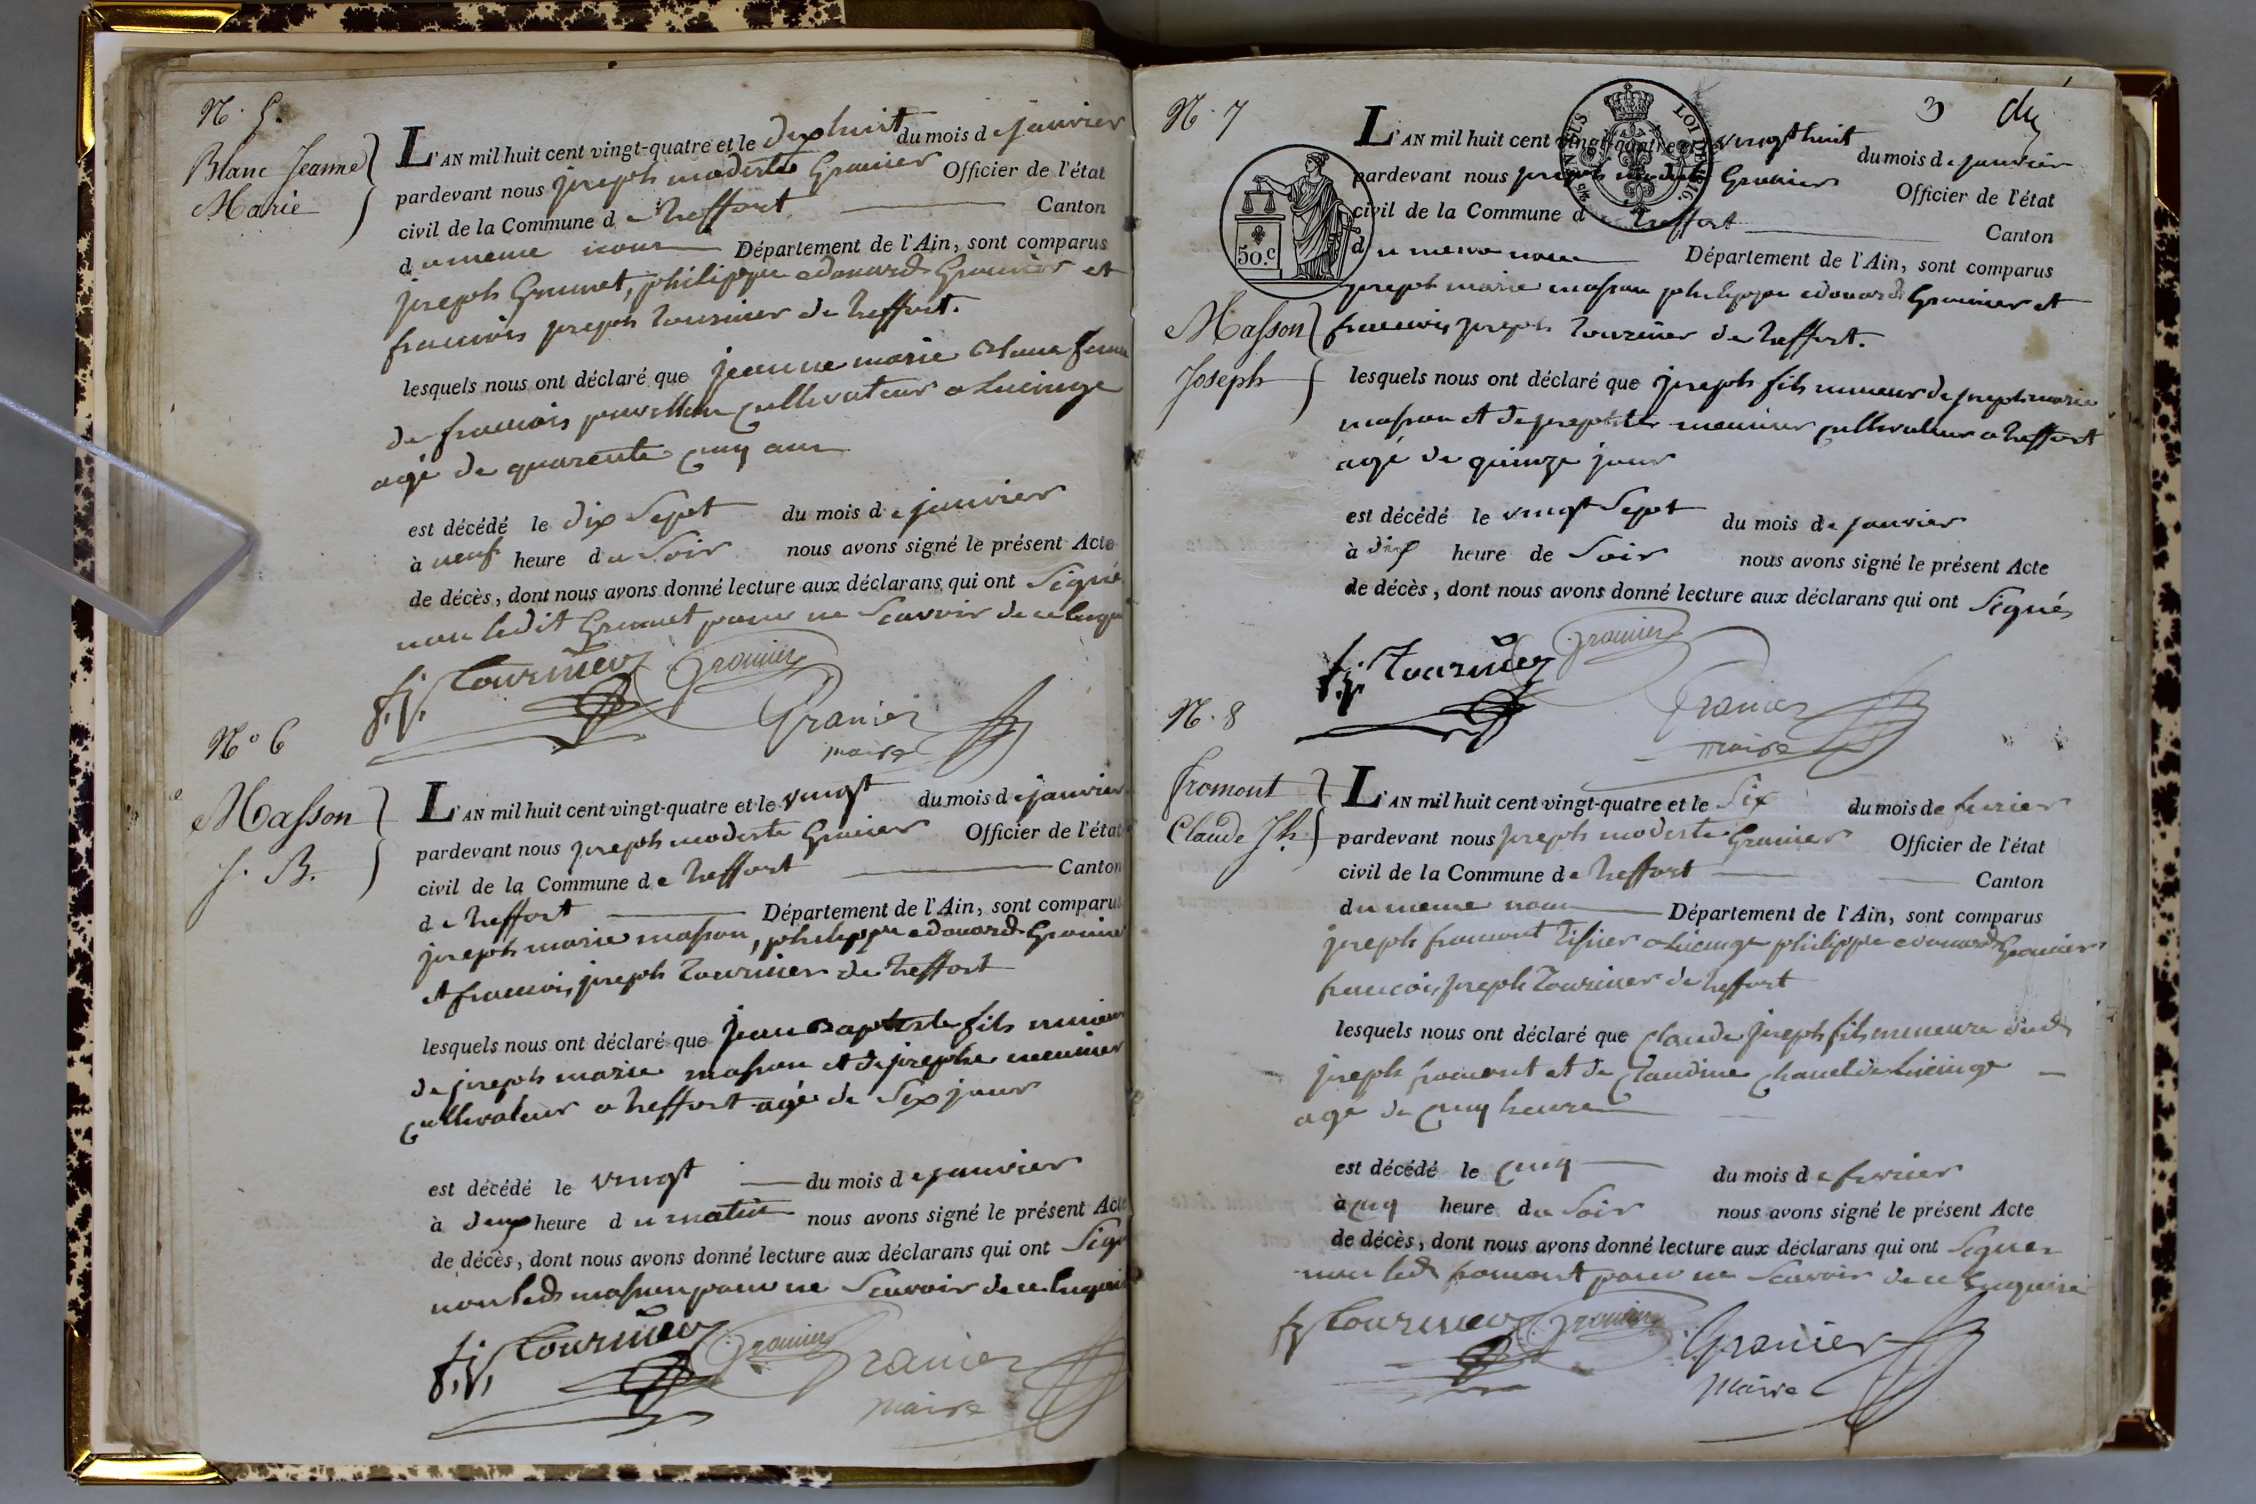 N. 5.
Blanc Jeanne
Marie
L'AN mil huit cent vingt-quatre et le dixhuit du mois de janvier
pardevant nous joseph modeste Granier Officier de l'état
civil de la Commune de treffort Canton
du meme nom Département de l'Ain, sont comparus
joseph Grumet, philippe edouard Granier et
francois joseph tournier de treffort.
lesquels nous ont déclaré que jeanne marie blanc femme
de francois cultivateur a Lucinge
agé de quarente cinq ans
est décédé le dix Sept du mois de janvier
à neuf heure du Soir nous avons signé le présent Acte
de décès, dont nous avons donné lecture aux déclarans qui ont Signé
non ledit Grumet pour ne Scavoir de ce
f. j. Tournier Granier
Granier
maire
N° 6
Masson
J. B.
L'AN mil huit cent vingt-quatre et le vingt du mois de janvier
pardevant nous joseph modeste Granier Officier de l'état
civil de la Commune de treffort Canton
de treffort Département de l'Ain, sont comparus
joseph marie masson, philippe edouard Granier
et francois joseph tournier de treffort
lesquels nous ont déclaré que jean Baptiste fils mineur
de joseph marie masson et de josephte meunier
cultivateur a treffort agé de Six jours
est décédé le vingt du mois de janvier
à deux heure du matin nous avons signé le présent Acte
de décès, dont nous avons donné lecture aux déclarans qui ont Signé
non led masson pour ne Scavoir de ce enquis
f. j. Tournier Granier
Granier
maire
3
N. 7
LOI DE 1816.
50.c
L'AN mil huit cent vingt-quatre et le vingt huit du mois de janvier
pardevant nous joseph modeste Granier Officier de l'état
civil de la Commune de treffort Canton
du meme nom Département de l'Ain, sont comparus
joseph marie masson philippe edouard Granier et
Masson
francois joseph tournier de treffort.
Joseph
lesquels nous ont déclaré que joseph fils mineur de joseph marie
masson et de josephte meunier cultivateur a treffort
agé de quinze jour
est décédé le vingt Sept du mois de janvier
à dix heure de Soir nous avons signé le présent Acte
de décès, dont nous avons donné lecture aux déclarans qui ont Signés
f. j. Tournier Granier
Granier
maire
N. 8
fromont
Claude Jh.
L'AN mil huit cent vingt-quatre et le Six du mois de fevrier
pardevant nous joseph modeste Granier Officier de l'état
civil de la Commune de treffort Canton
du meme nom Département de l'Ain, sont comparus
joseph fromont tissier a Lucinge philippe edouard Granier
francois joseph tournier de treffort
lesquels nous ont déclaré que Claude joseph fils mineure dud
joseph fromont et de Claudine Chanel de Lucinge
age de cinq heure
est décédé le cinq du mois de fevrier
à cinq heure du Soir nous avons signé le présent Acte
de décès, dont nous avons donné lecture aux déclarans qui ont Signer
non led fromont pour ne Scavoir de ce enquerir
f j Tournier Granier
Granier
Maire